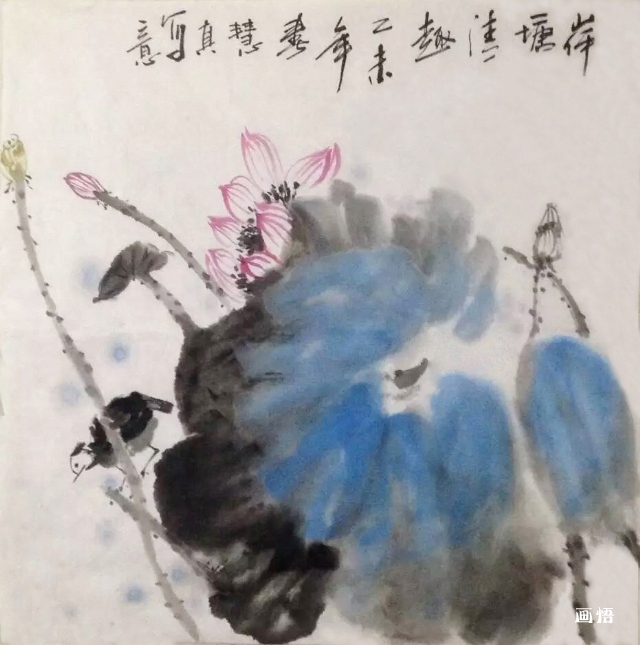 荷塘清趣乙未年春慧真写意
画悟